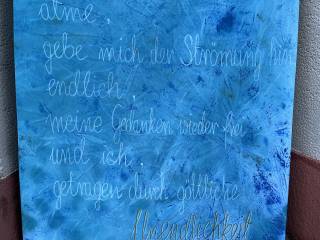 atme,
gebe mich der Strömung hin
endlich!
meine Gedanken wieder frei
und ich.
getragen durch göttliche
Unendlichkeit